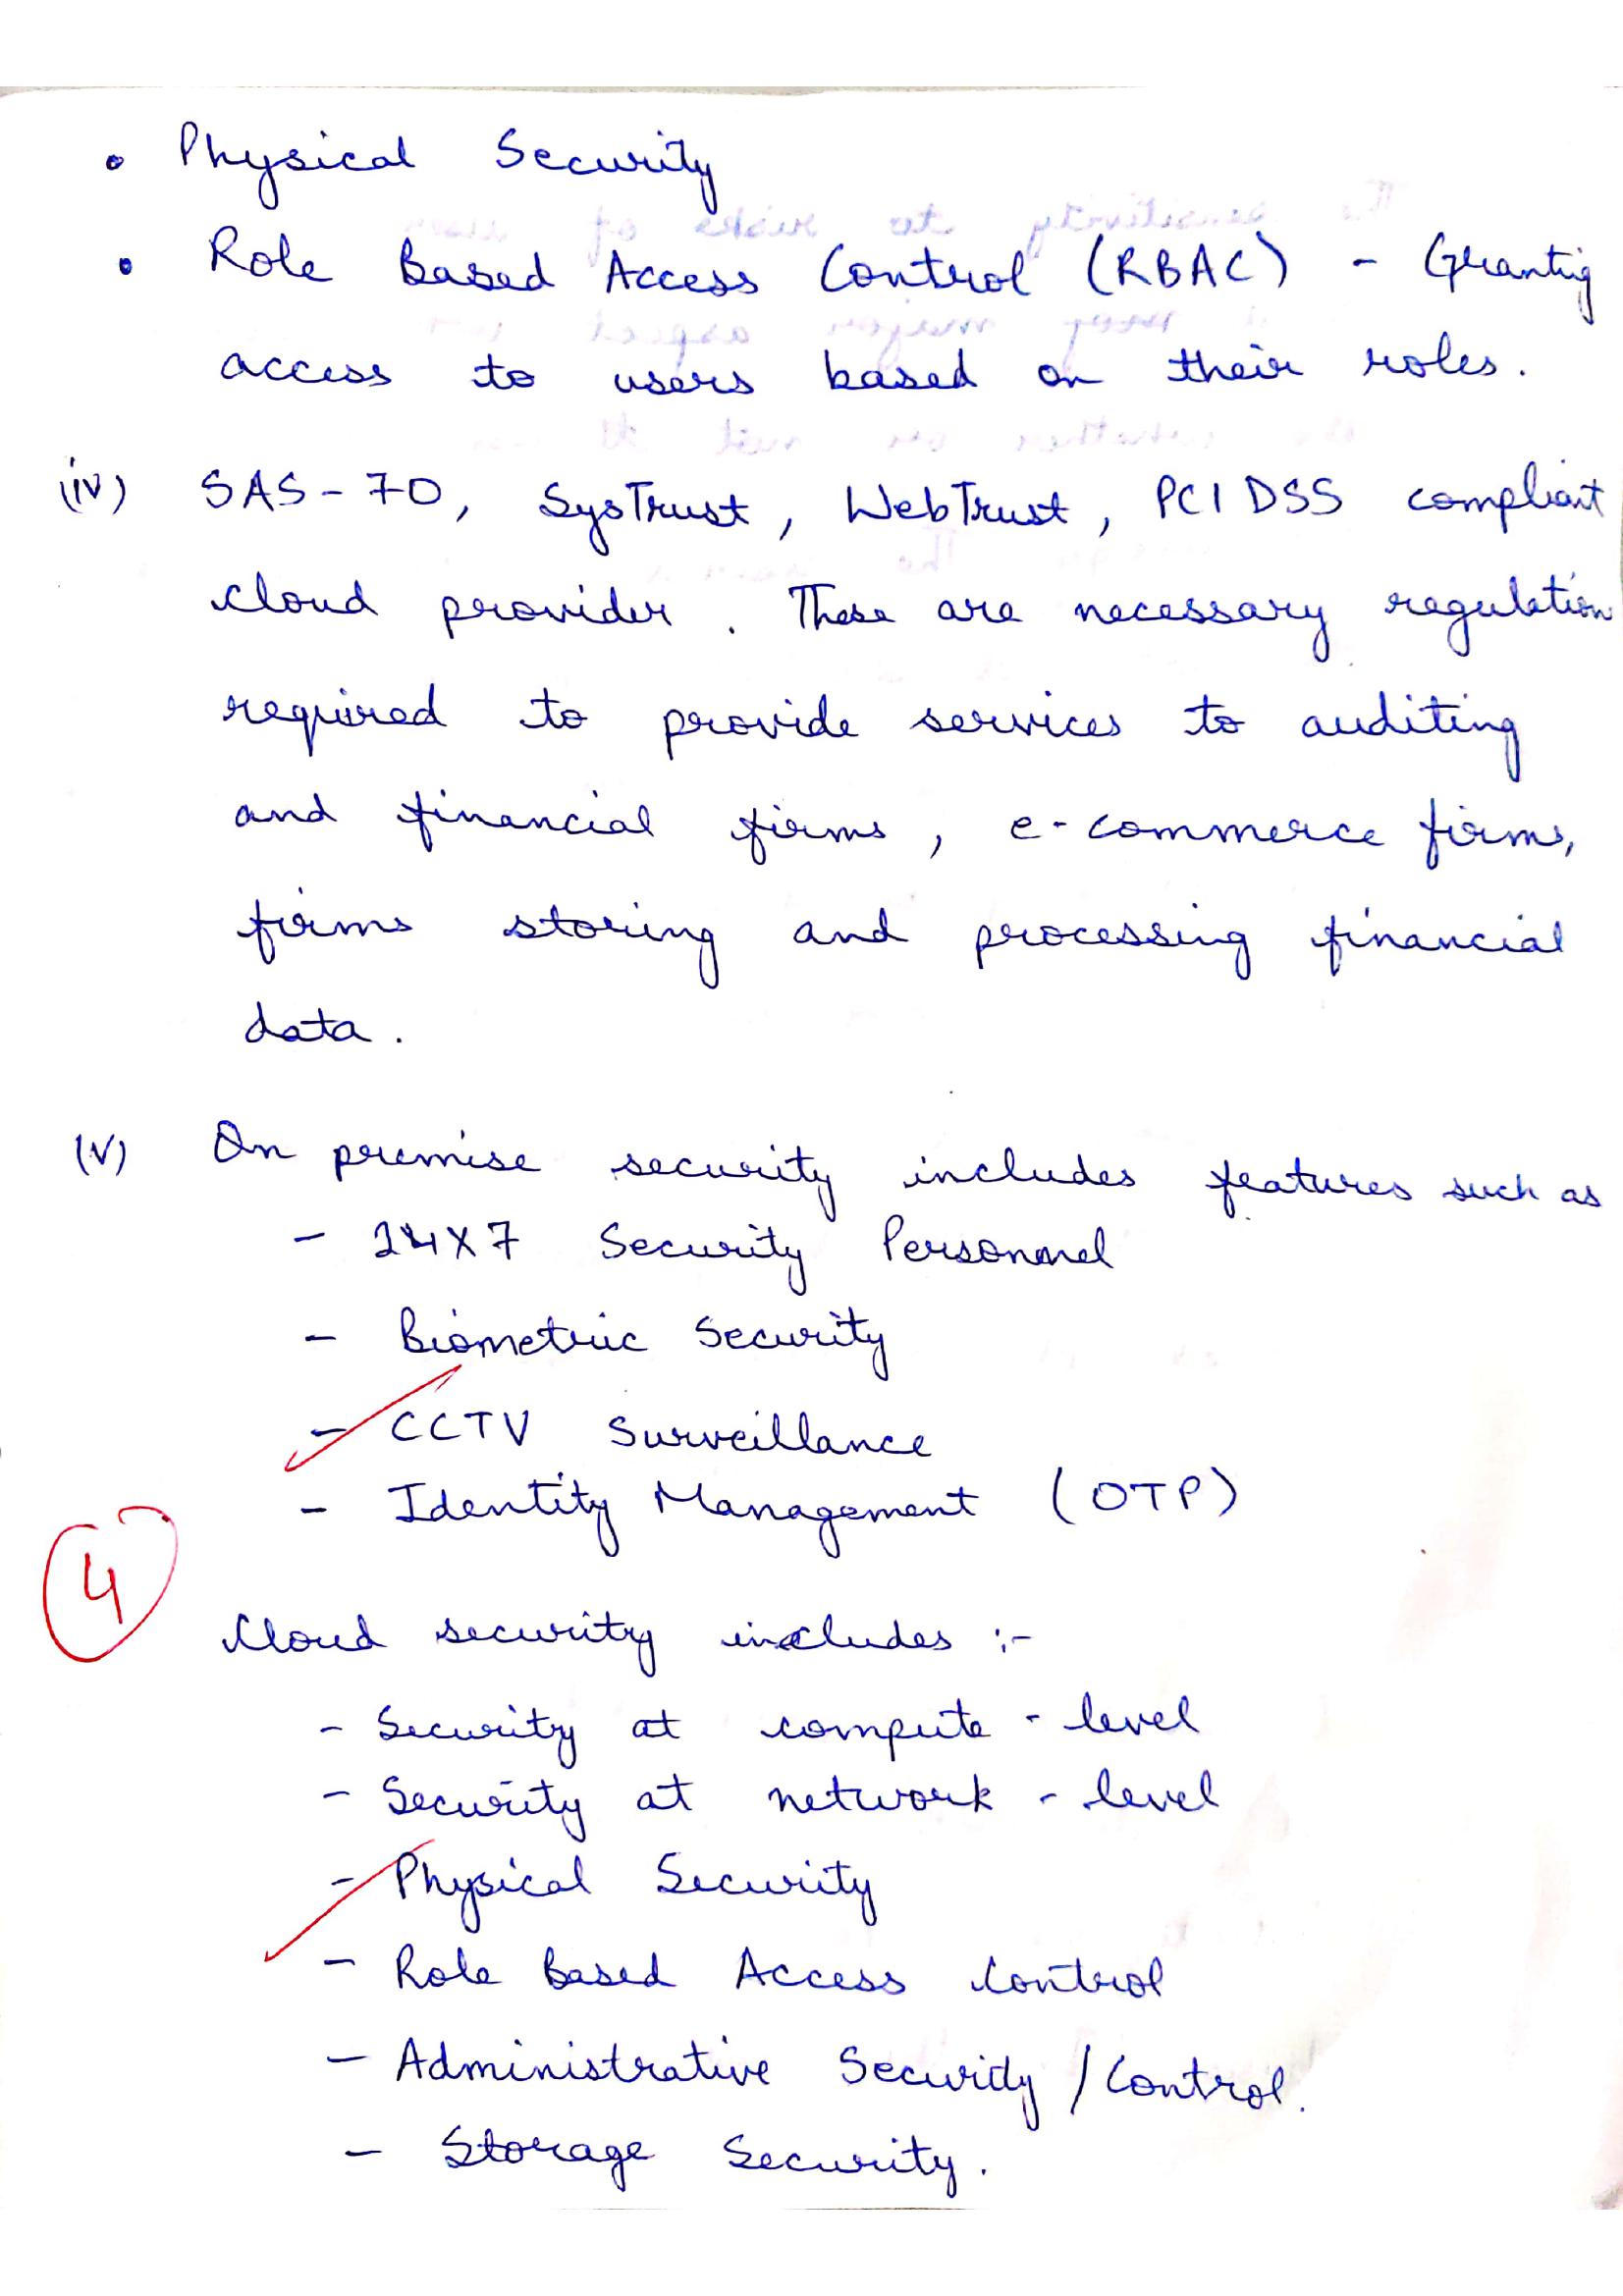 • Physical Security
• Role Based Access Control (RBAC) - Granting
access to users based on their roles.
(iv) SAS-70, SysTrust, WebTrust, PCI DSS compliant
cloud provider. These are necessary regulation
required to provide services to auditing
and financial firms, e-commerce firms,
firms storing and processing financial
data.
(v) On premise security includes features such as
- 24X7 Security Personnel
- Biometric Security
- CCTV Surveillance
- Identity Management (OTP)
4
Cloud security includes :-
- Security at compute - level
- Security at network - level
- Physical Security
- Role Based Access Control
- Administrative Security / Control.
- Storage Security.